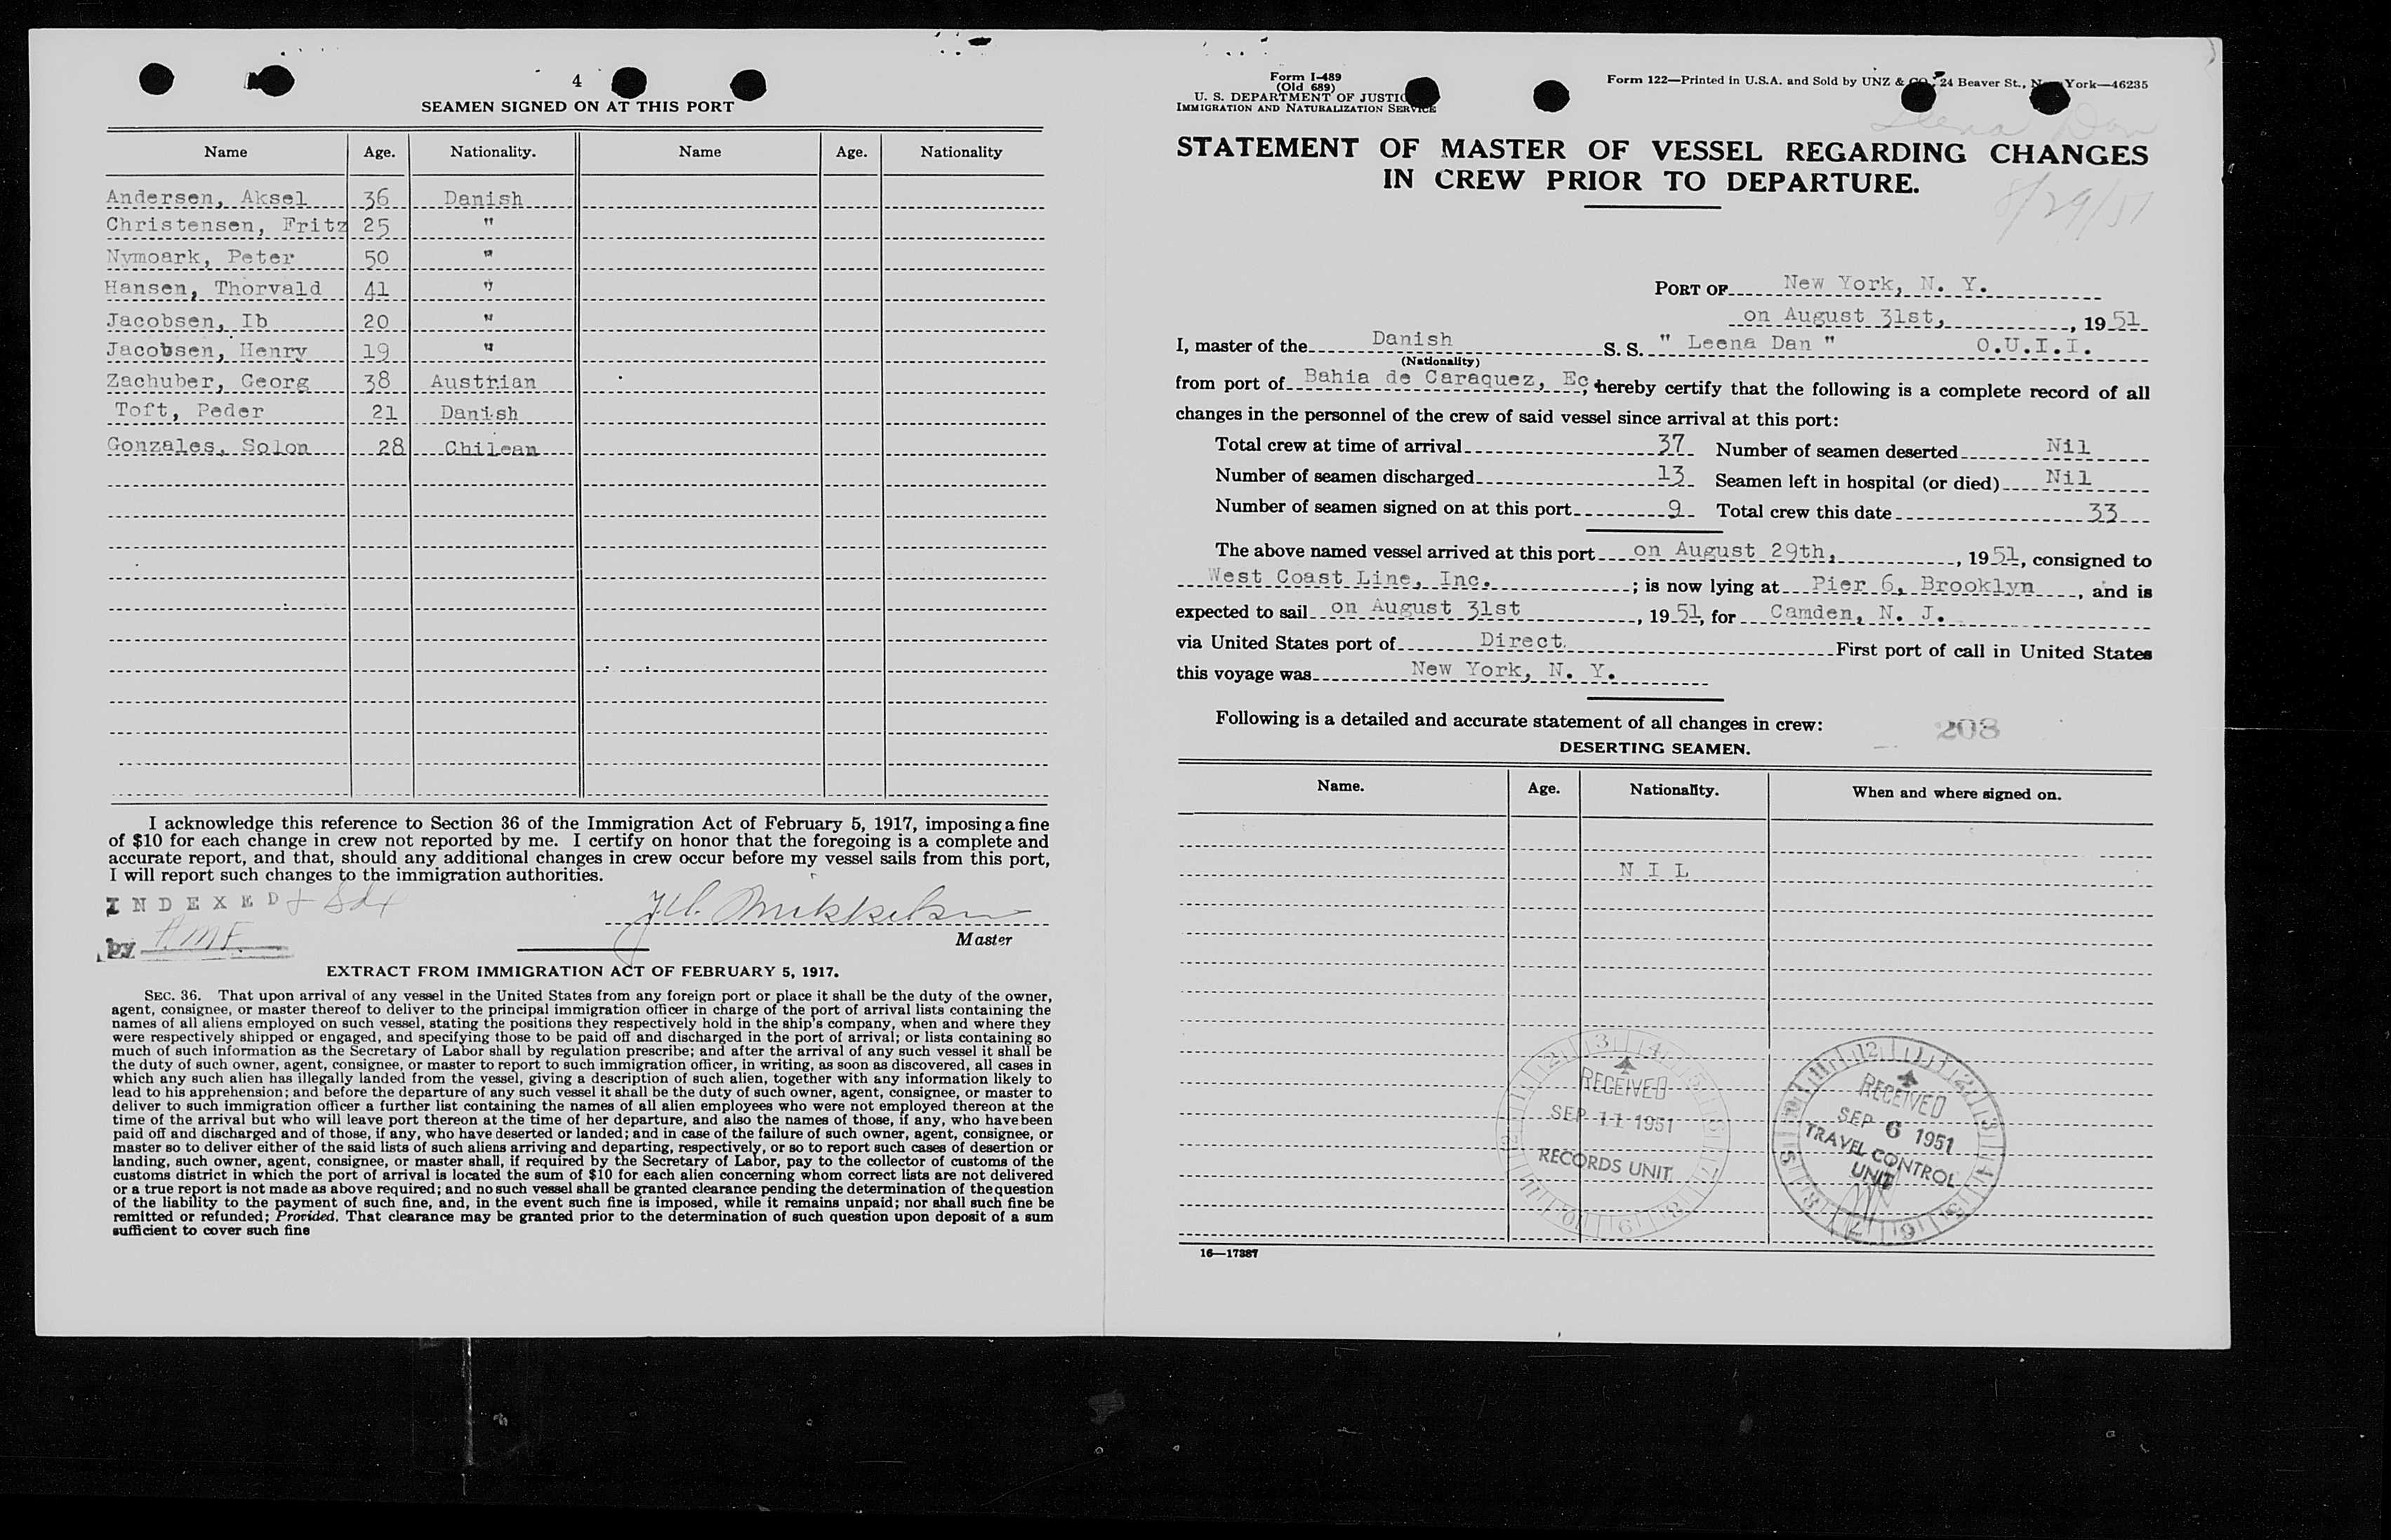 4
SEAMEN SIGNED ON AT THIS PORT
Name Age. Nationality. Name Age. Nationality
Andersen, Aksel 36 Danish
Christensen, Fritz 25 "
Nymoark, Peter 50 "
Hansen, Thorvald 41 "
Jacobsen, Ib 20 "
Jacobsen, Henry 19 "
Zachuber, Georg 38 Austrian
Toft, Peder 21 Danish
Gonzales, Solon 28 Chilean
I acknowledge this reference to Section 36 of the Immigration Act of February 5, 1917, imposing a fine
of $10 for each change in crew not reported by me. I certify on honor that the foregoing is a complete and
accurate report, and that, should any additional changes in crew occur before my vessel sails from this port,
I will report such changes to the immigration authorities.
INDEXED
by
Master
EXTRACT FROM IMMIGRATION ACT OF FEBRUARY 5, 1917.
SEC. 36. That upon arrival of any vessel in the United States from any foreign port or place it shall be the duty of the owner,
agent, consignee, or master thereof to deliver to the principal immigration officer in charge of the port of arrival lists containing the
names of all aliens employed on such vessel, stating the positions they respectively hold in the ship's company, when and where they
were respectively shipped or engaged, and specifying those to be paid off and discharged in the port of arrival; or lists containing so
much of such information as the Secretary of Labor shall by regulation prescribe; and after the arrival of any such vessel it shall be
the duty of such owner, agent, consignee, or master to report to such immigration officer, in writing, as soon as discovered, all cases in
which any such alien has illegally landed from the vessel, giving a description of such alien, together with any information likely to
lead to his apprehension; and before the departure of any such vessel it shall be the duty of such owner, agent, consignee, or master to
deliver to such immigration officer a further list containing the names of all alien employees who were not employed thereon at the
time of the arrival but who will leave port thereon at the time of her departure, and also the names of those, if any, who have been
paid off and discharged and of those, if any, who have deserted or landed; and in case of the failure of such owner, agent, consignee, or
master so to deliver either of the said lists of such aliens arriving and departing, respectively, or so to report such cases of desertion or
landing, such owner, agent, consignee, or master shall, if required by the Secretary of Labor, pay to the collector of customs of the
customs district in which the port of arrival is located the sum of $10 for each alien concerning whom correct lists are not delivered
or a true report is not made as above required; and no such vessel shall be granted clearance pending the determination of the question
of the liability to the payment of such fine, and, in the event such fine is imposed, while it remains unpaid; nor shall such fine be
remitted or refunded; Provided, That clearance may be granted prior to the determination of such question upon deposit of a sum
sufficient to cover such fine
Form I-489
(Old 689)
U. S. DEPARTMENT OF JUSTICE
IMMIGRATION AND NATURALIZATION SERVICE
Form 122—Printed in U.S.A. and Sold by UNZ & CO., 24 Beaver St., New York—46235
Leena Dan
STATEMENT OF MASTER OF VESSEL REGARDING CHANGES
IN CREW PRIOR TO DEPARTURE.
8/29/51
PORT OF New York, N. Y.
on August 31st, , 1951
I, master of the Danish S. S. " Leena Dan " O.U.I.I.
(Nationality)
from port of Bahia de Caraquez, Ec, hereby certify that the following is a complete record of all
changes in the personnel of the crew of said vessel since arrival at this port:
Total crew at time of arrival 37 Number of seamen deserted Nil
Number of seamen discharged 13 Seamen left in hospital (or died) Nil
Number of seamen signed on at this port 9 Total crew this date 33
The above named vessel arrived at this port on August 29th, , 1951, consigned to
West Coast Line, Inc. ; is now lying at Pier 6, Brooklyn , and is
expected to sail on August 31st , 1951, for Camden, N. J.
via United States port of Direct. First port of call in United States
this voyage was New York, N. Y.
Following is a detailed and accurate statement of all changes in crew:
208
DESERTING SEAMEN.
Name. Age. Nationality. When and where signed on.
NIL
RECEIVED
SEP 11 1951
RECORDS UNIT
RECEIVED
SEP 6 1951
TRAVEL CONTROL
UNIT
16—17387